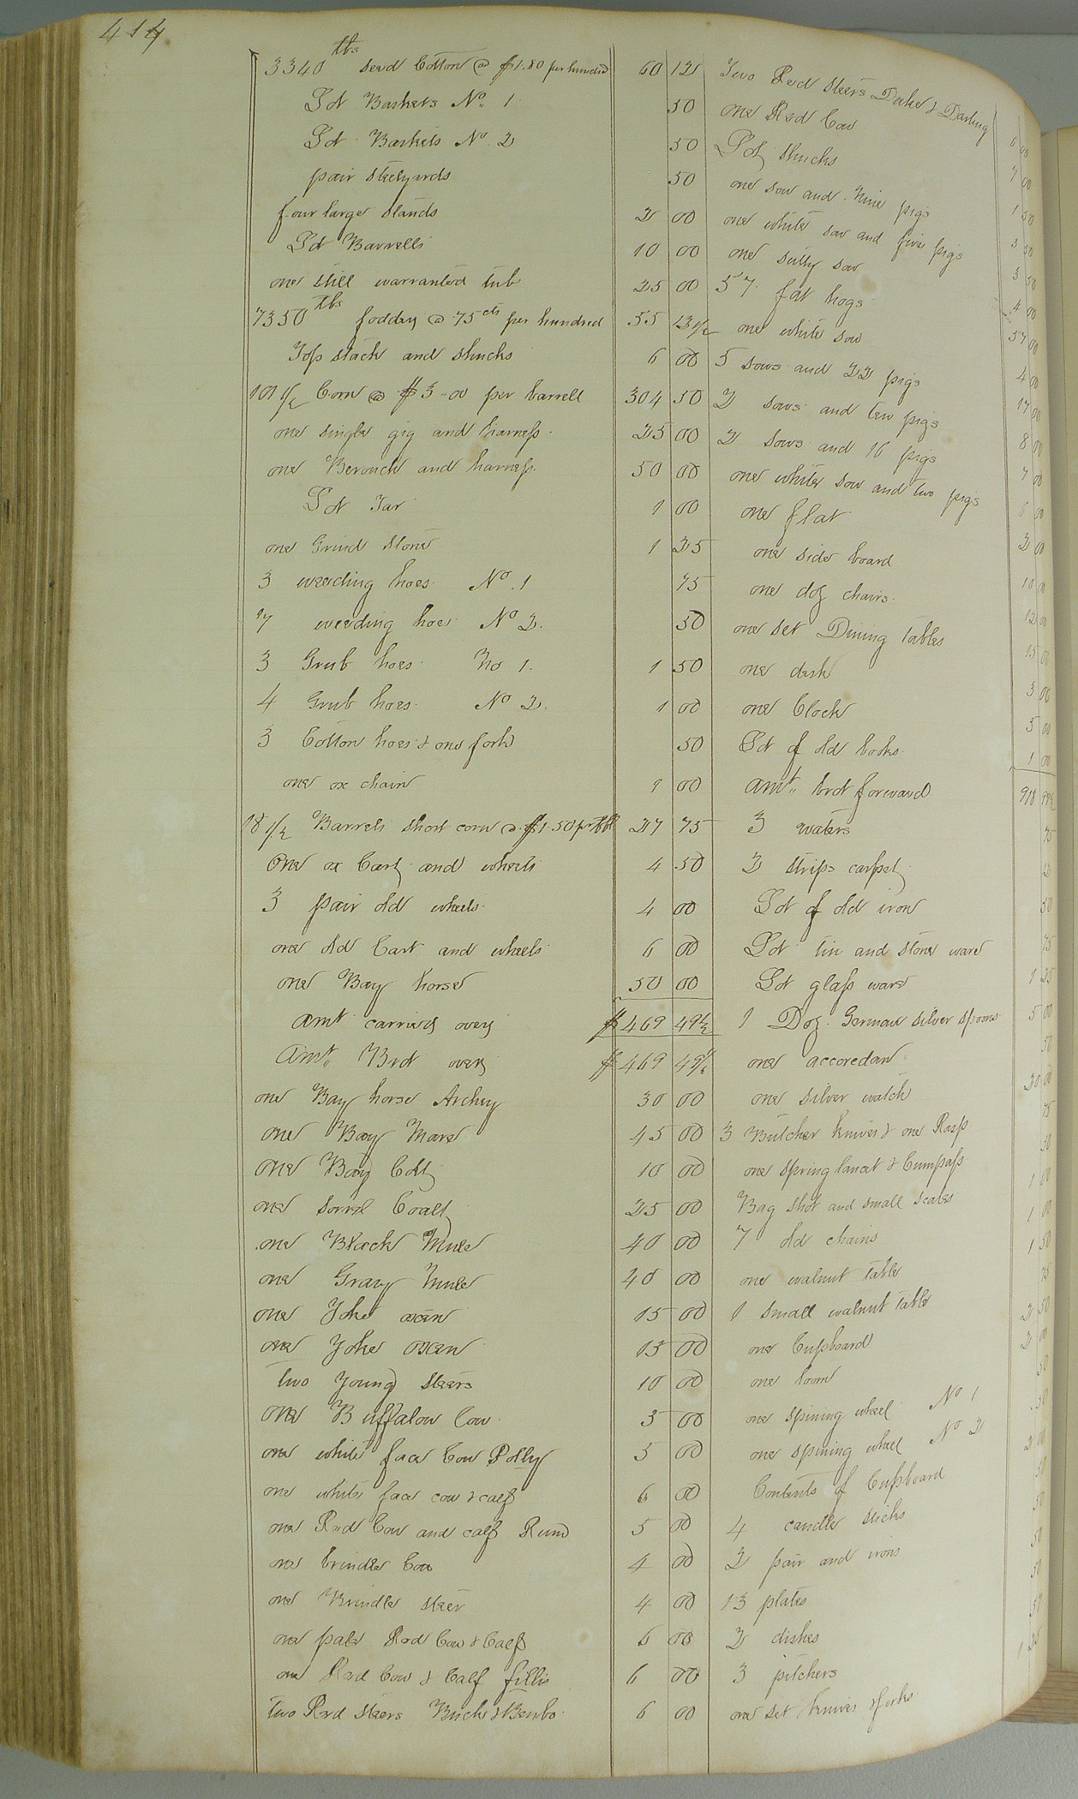 414
3340 lbs Seed Cotton @ $1.80 per hundred 60 12
Lot Baskets No. 1 50
Lot Baskets No 2 50
pair Steelyards 50
four large Stands 2 00
Lot Barrells 10 00
one Still warranted tub 25 00
7350 lbs fodder @ 75 cts per hundred 55 13 1/2
Tops stack and Shucks 6 00
101 1/2 Corn @ $3-00 per barrell 304 50
one single gig and harness 25 00
one Berouch and harness 50 00
Lot Tar 1 00
one Grind Stone 1 25
3 weeding hoes No. 1 75
7 weeding hoes No 2. 50
3 Grub hoes No 1. 1 50
4 Grub hoes No 2. 1 00
3 Cotton hoes & one fork 50
one ox chain 1 00
18 1/2 Barrels Short corn @ $1.50 pr bbl 27 75
One ox Cart and wheels 4 50
3 pair old wheels 4 00
one old Cart and wheels 6 00
one Bay horse 50 00
amt carried over $469 49 1/2
Amt. Brot over $469 49 1/2
one Bay horse Archey 30 00
one Bay Mare 45 00
one Bay Colt 10 00
one Sorrel Coalt 25 00
one Black Mule 40 00
one Gray Mule 40 00
one Yoke oxen 15 00
one Yoke oxen 15 00
two Young Steers 10 00
one Buffalow Cow 5 00
one white face Cow Polly 5 00
one white face cow & calf 6 00
one Red Cow and calf 5 00
one brindle Cow 4 00
one Brindle Steer 4 00
one pale Red Cow & Calf 6 00
one Red Cow & Calf fillis 6 00
two Red Steers Buck & Benbo 6 00
Two Red Steers Duke & Darling 6 00
one Red Cow 7 00
Lot Shucks 1 50
one sow and Nine pigs 5 50
one white sow and five pigs 5 50
one Sully sow 4 00
57 fat hogs 57 00
one white sow 4 00
5 sows and 22 pigs 17 00
2 sows and ten pigs 8 00
2 sows and 16 pigs 7 00
one white sow and two pigs 00
one flat 2 00
one side board 10 0
one doz chairs 12 00
one set Dining tables 15 00
one desk 3 00
one Clock 5 00
Lot of old books 1 00
amt. brot forward 918
3 waters 75
2 strips carpet
Lot of old iron 50
Lot tin and stone ware 75
Lot glass ware 1 25
1 Doz. German silver spoons 5 00
one accoredan 50
one silver watch 30 00
3 Butcher Knives & one Rasp 75
one spring lancet & Cumpass 50
Bag shot and small scales 1 00
7 old chains 1 00
one walnut table 1 50
1 small walnut table 75
one Cupboard 2 50
one loom 2 00
one spining wheel No 1 50
one spining wheel No 2 50
Contents of Cupboard 2 00
4 candle sticks 50
2 pair and irons 50
13 plates 50
2 dishes 50
3 pitchers 50
one set Knives & forks 1 25